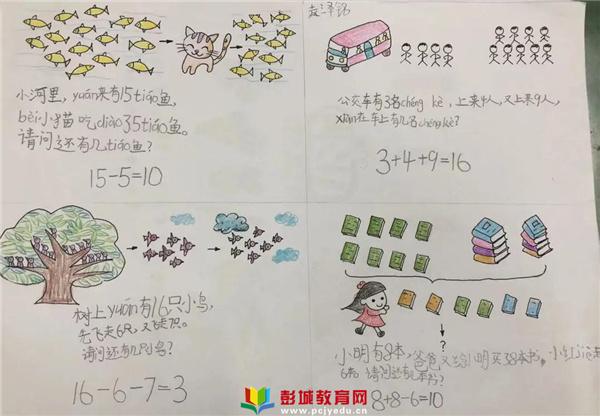 小河里，yuán来有15tiáo鱼，
bèi小猫吃diào了5tiáo鱼。
请问还有几tiáo鱼？
15-5=10
泽铭
公交车有3名chéng kè，上来4人，又上来9人，
xiàn在车上有几名chéng kè？
3+4+9=16
树上yuán有16只小鸟，
先飞走6只，又飞走7只。
请问还有几只小鸟？
16-6-7=3
?
小明有8本，爸爸又给小明买了8本书，小红jiè走
6本，请问还有几本书？
8+8-6=10
彭城教育网
www.pcjyedu.cn